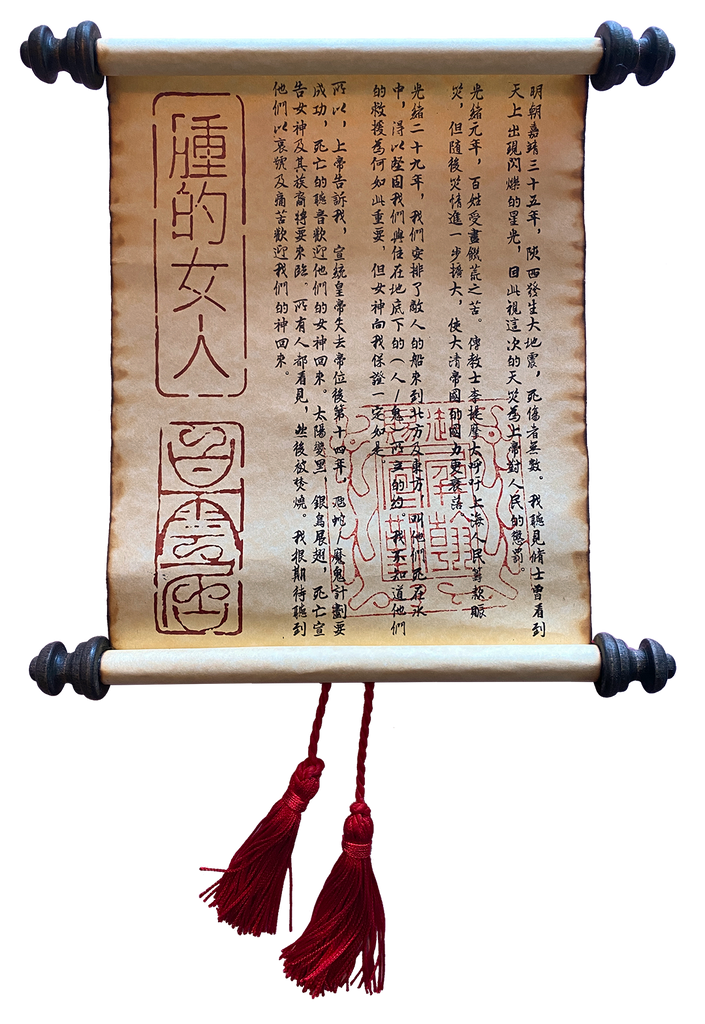 明朝嘉靖三十五年，陝西發生大地震，死傷者無數。我聽見修士曾看到
天上出現閃爍的星光，因此視這次的天災為上帝對人民的懲罰。
光緒元年，百姓受盡饑荒之苦。傳教士李提摩太呼吁上海人民籌款賑
災，但隨後災情進一步擴大，使大清帝國的國力更衰落
光緒二十九年，我們安排了敵人的船來到北方及東方，叫他們死在冰
中，得以堅固我們與住在地底下的（人/鬼）所立的約。我不知道他們
的救援為何如此重要，但女神向我保證一定如是
所以，上帝告訴我，宣統皇帝失去帝位後第十四年，恐蛇/魔鬼計劃要
成功，死亡的聽音歡迎他們的女神回來。太陽變黑，銀鳥展翅，死亡宣
告女神及其族裔將要來臨。所有人都看見，然後被焚燒。我很期待聽到
他們以哀號及痛苦歡迎我們的神回來。
腫的女人